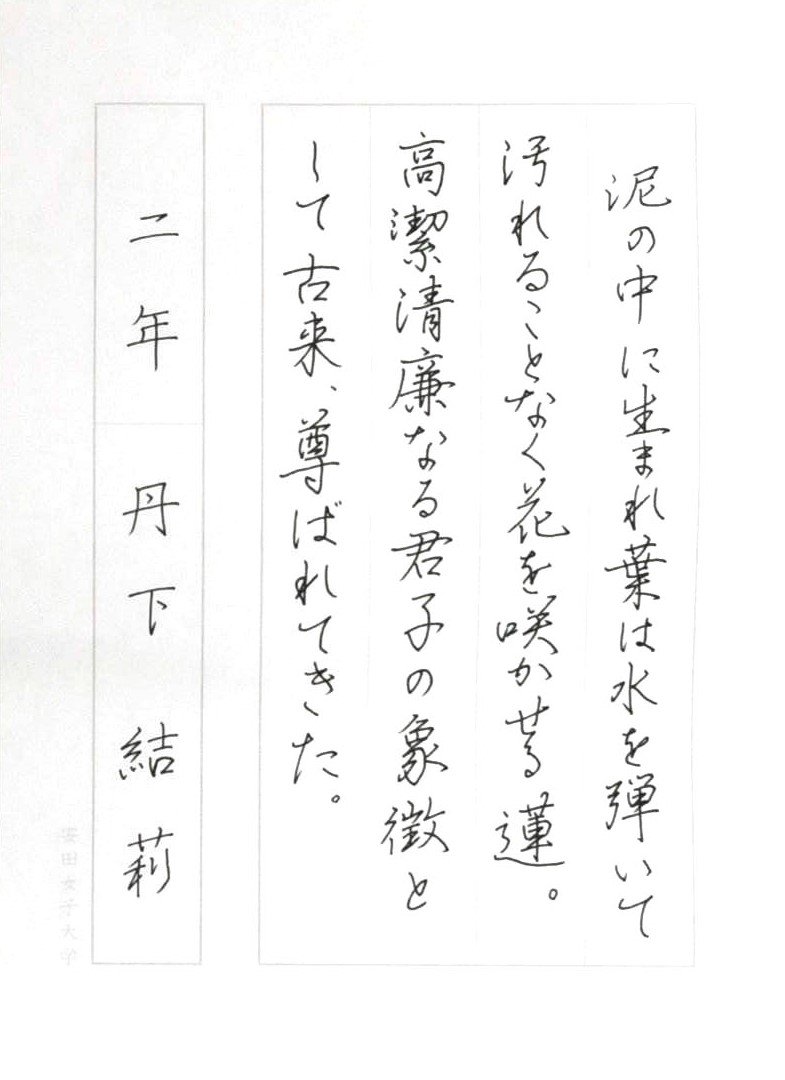 泥の中に生まれ葉は水を弾いて
汚れることなく花を咲かせる蓮。
高潔清廉なる君子の象徴と
して古来、尊ばれてきた。
二年 丹下 結莉
安田女子大学